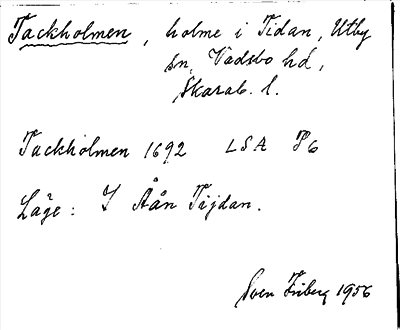 Tackholmen, holme i Tidan, Utby
sn, Vadsbo hd,
Skarab. l.
Tackholmen 1692 LSA P6
Läge: I Åån Tijdan.
Sven Friberg 1956